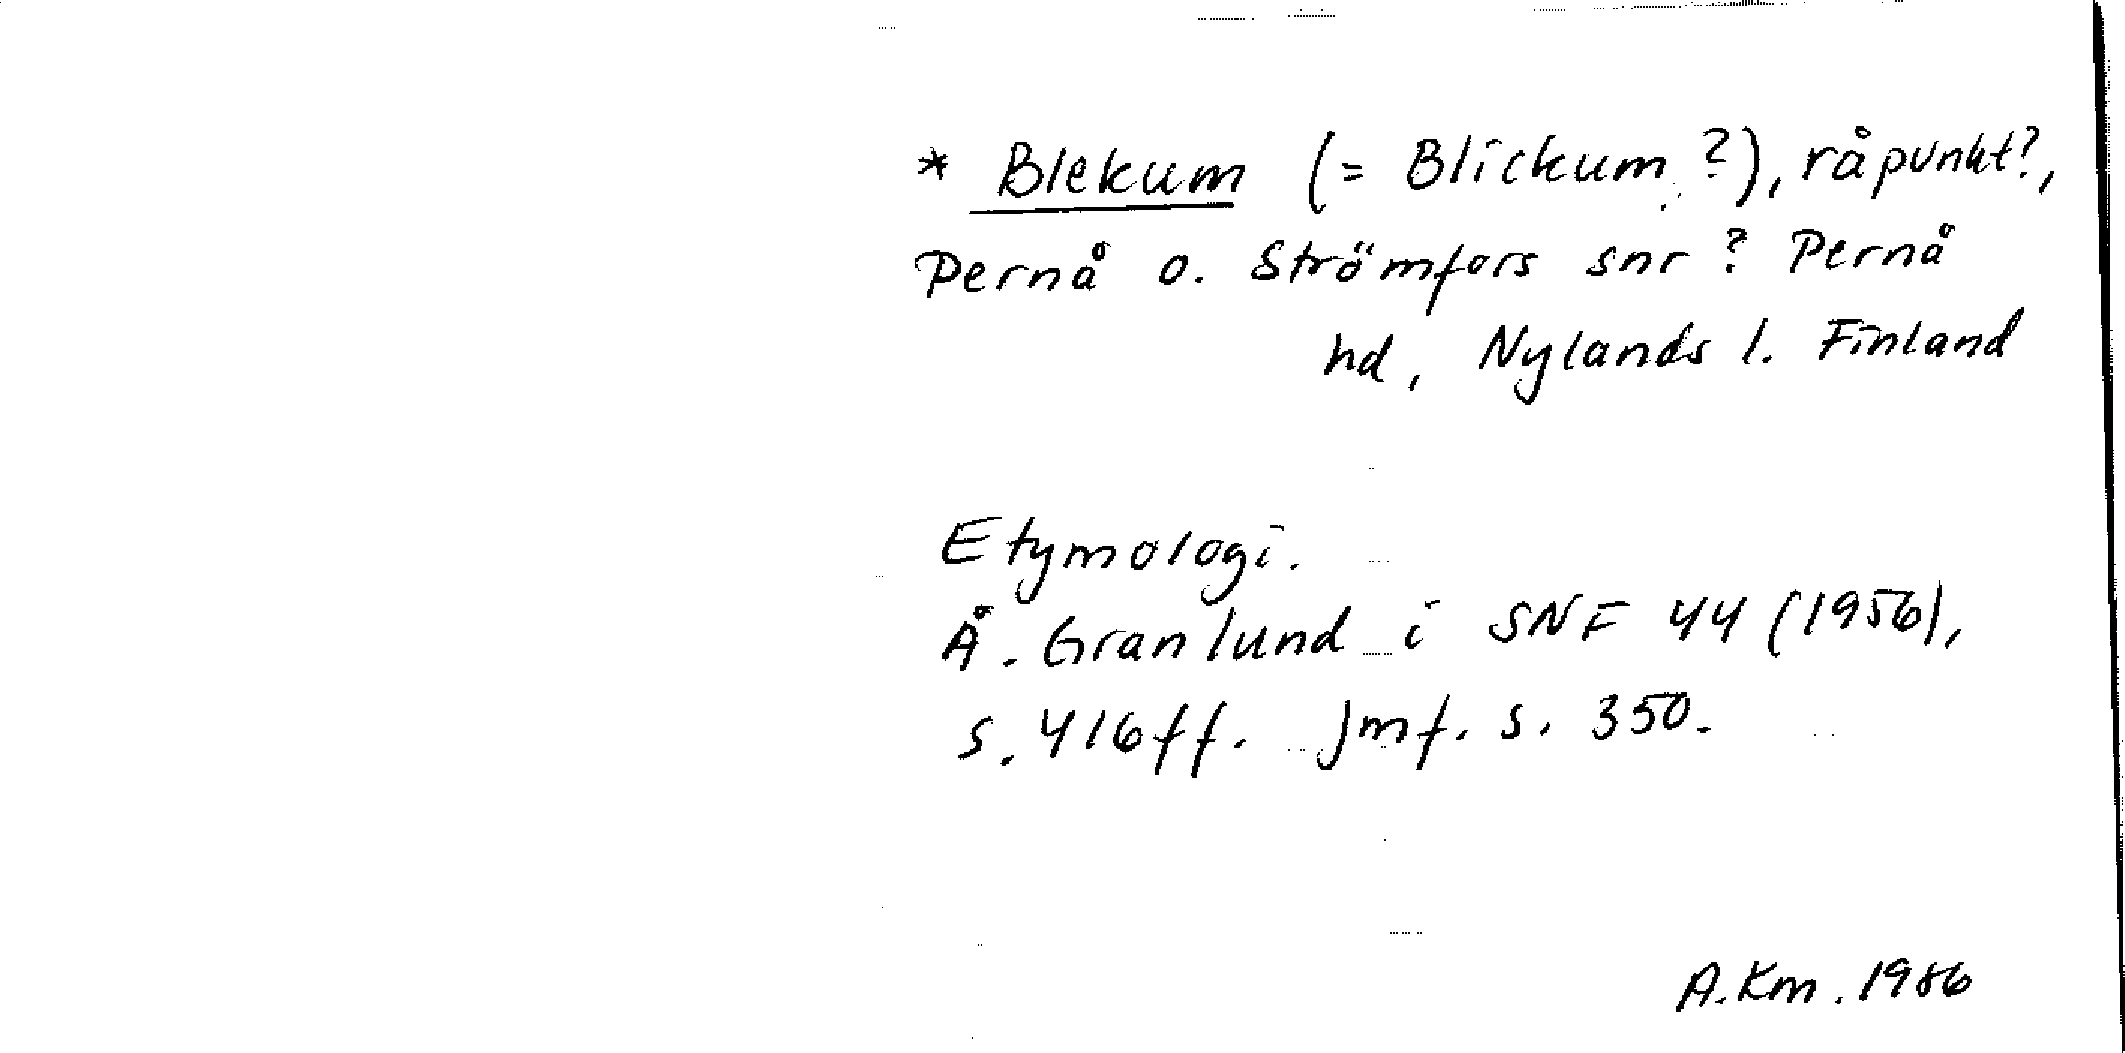 * Blekum (= Blickum ?), råpunkt?,
Pernå o. Strömfors snr ? Pernå
hd, Nylands l. Finland
Etymologi.
Å. Granlund i SNF 44 (1956),
s. 416ff. jmf. s. 350.
A.Km. 1986